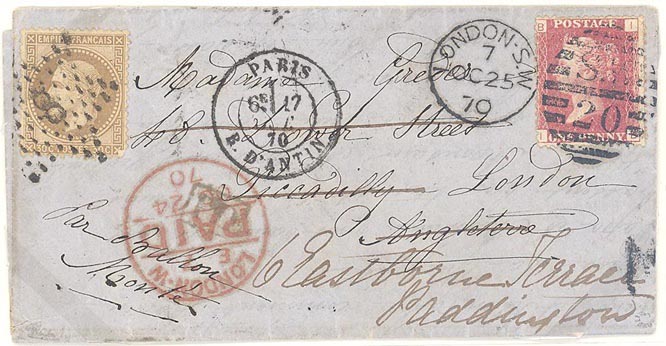 EMPIRE FRANÇAIS
30 C POSTES 30 C
8
PARIS
6E 17
70
R. D'ANTIN
LONDON·S.W
7
OC 25
70
POSTAGE
B I
I B
ONE PENNY
S.W
20
Madame
Street
Piccadilly London
Angleterre
Par Ballon
Monté
6 Eastborne Terrace
Paddington
LONDON·S.W
PAID
24
70